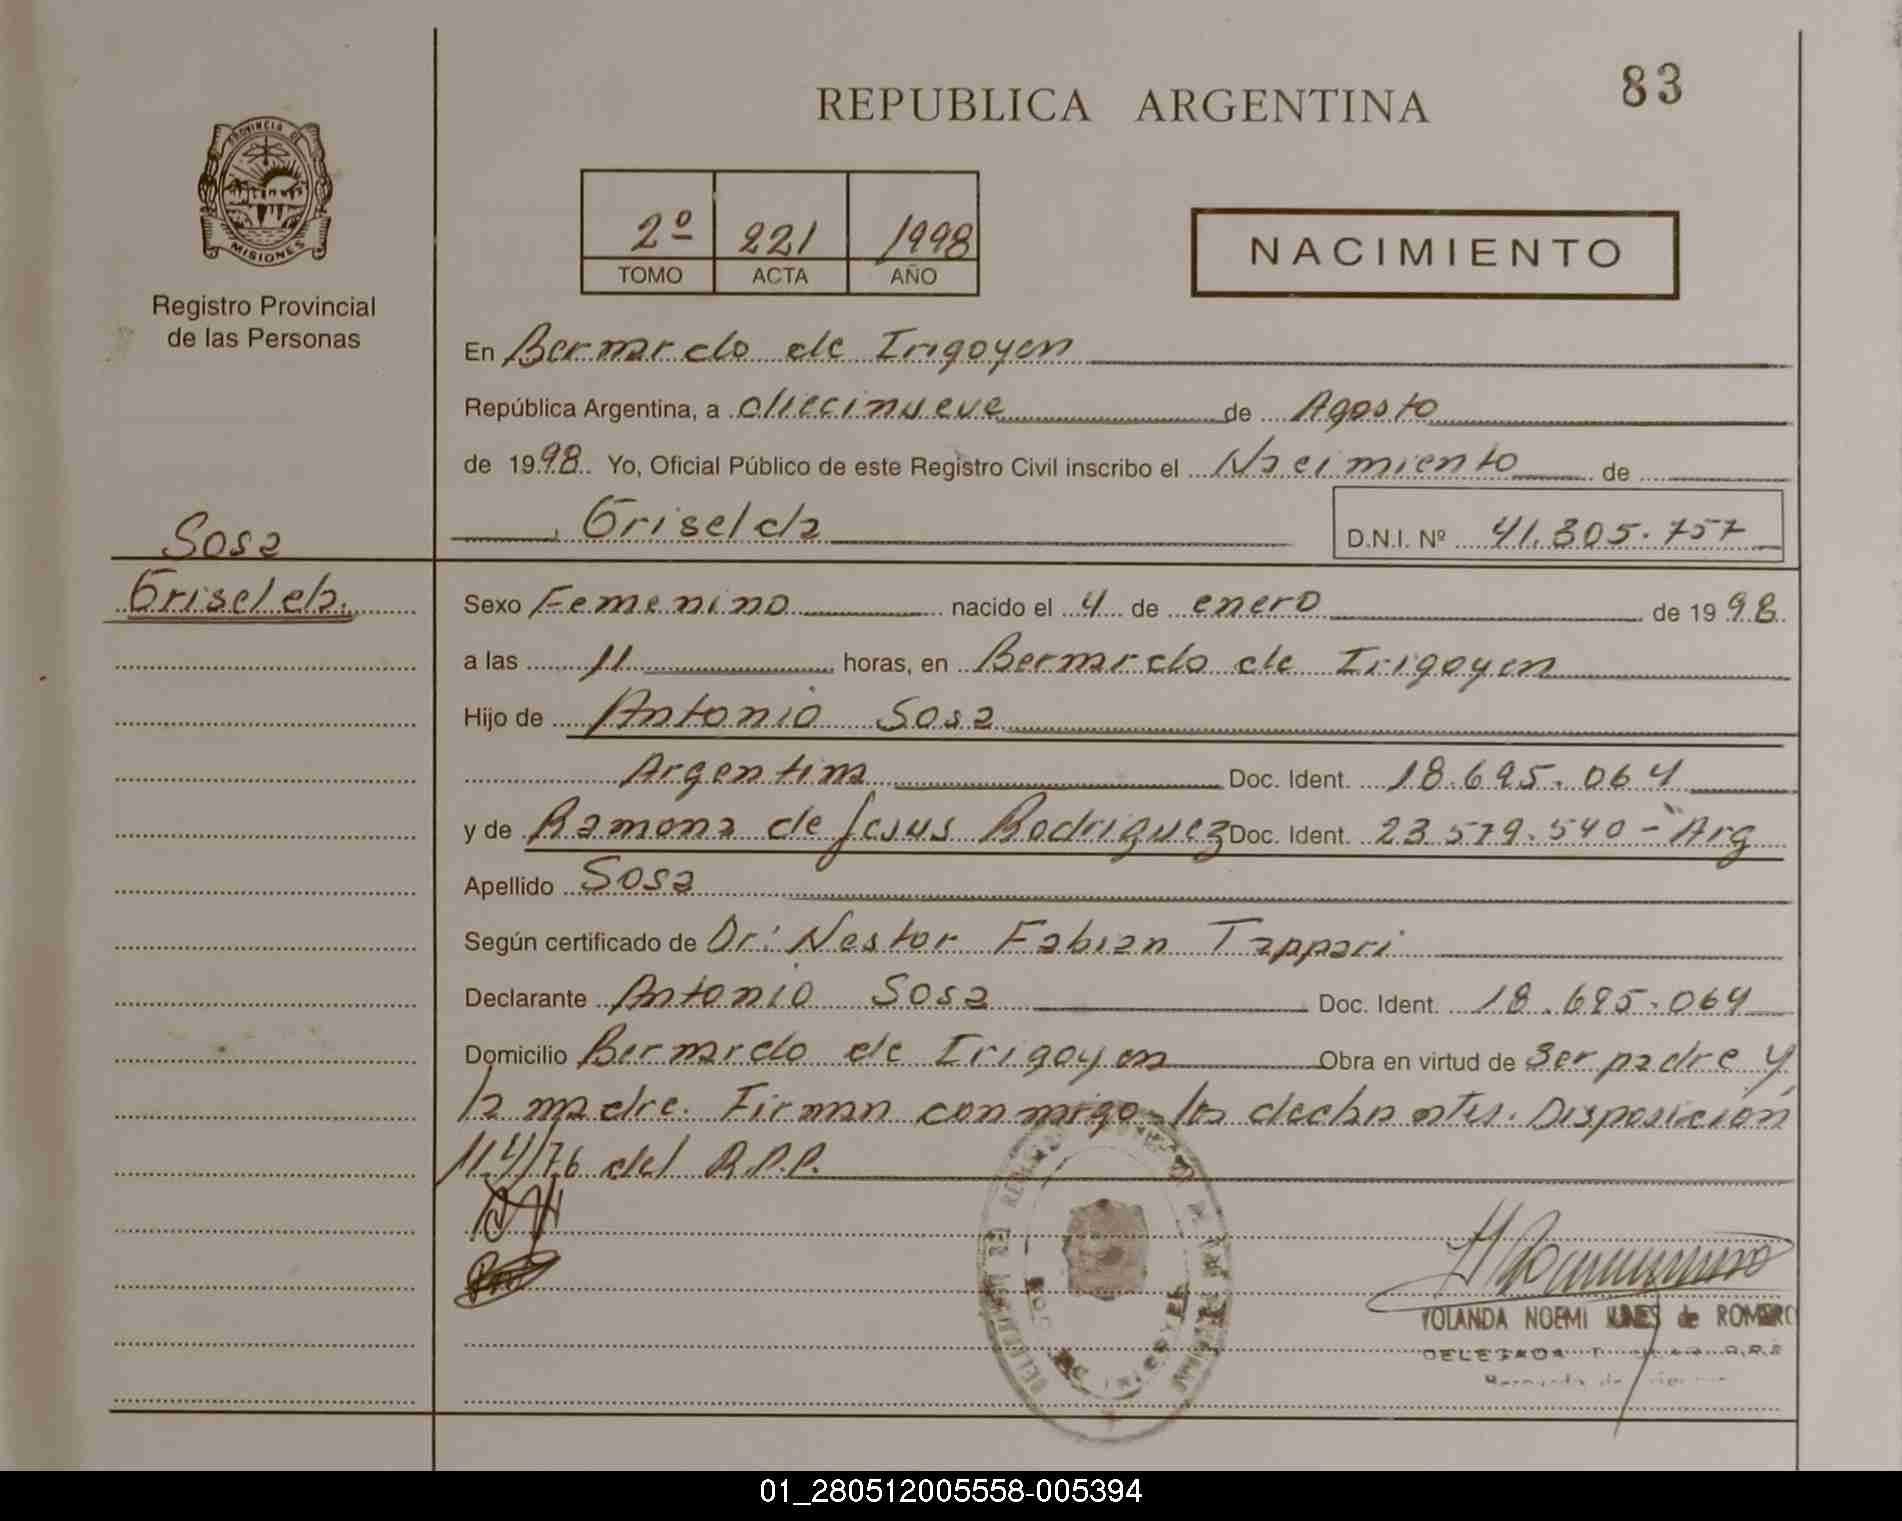 83
REPUBLICA ARGENTINA
PROVINCIA DE
MISIONES
Registro Provincial
de las Personas
2º 221 1998
TOMO ACTA AÑO
NACIMIENTO
En Bernardo de Irigoyen
República Argentina, a diecinueve de Agosto
de 1998. Yo, Oficial Público de este Registro Civil inscribo el Nacimiento de
Griselda
D.N.I. Nº 41.305.757
Sosa
Griselda.
Sexo Femenino nacido el 4 de enero de 1998
a las 11 horas, en Bernardo de Irigoyen
Hijo de Antonio Sosa
Argentina Doc. Ident. 18.695.064
y de Ramona de Jesus Rodriguez Doc. Ident. 23.579.540 - Arg
Apellido Sosa
Según certificado de Dr: Nestor Fabian Tappari
Declarante Antonio Sosa Doc. Ident. 18.695.064
Domicilio Bernardo de Irigoyen Obra en virtud de ser padre y
la madre. Firman conmigo los declarantes. Disposición
114/76 del R.P.P.
YOLANDA NOEMI de ROMERO
DELEGADA
Bernardo de Irigoyen
01_280512005558-005394